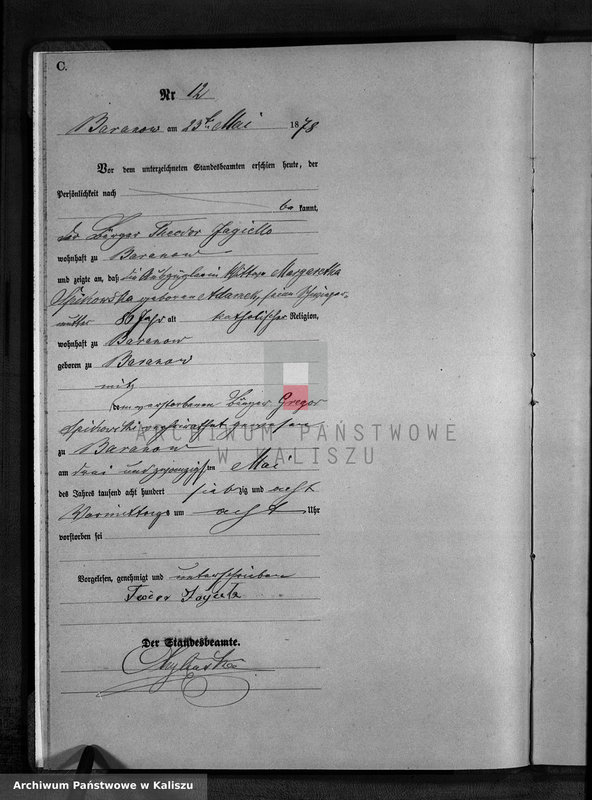 C.
Nr 12
Baranow am 23ten Mai 1878
Vor dem unterzeichneten Standesbeamten erschien heute, der
Persönlichkeit nach
bekannt,
der Bürger Theodor Jagiello
wohnhaft zu Baranow
und zeigte an, daß die Auszüglerin Wittwe Margaretha
geborene Adamek, seine Schwieger-
mutter 80 Jahr alt katholischer Religion,
wohnhaft zu Baranow
geboren zu Baranow
mit
dem verstorbenen Bürger Gregor
verheirathet gewesen
zu Baranow
am drei und zwanzigsten Mai
des Jahres tausend acht hundert siebzig und acht
Vormittags um acht Uhr
verstorben sei
Vorgelesen, genehmigt und unterschrieben
Der Standesbeamte.
ARCHIWUM PAŃSTWOWE
W KALISZU
Archiwum Państwowe w Kaliszu